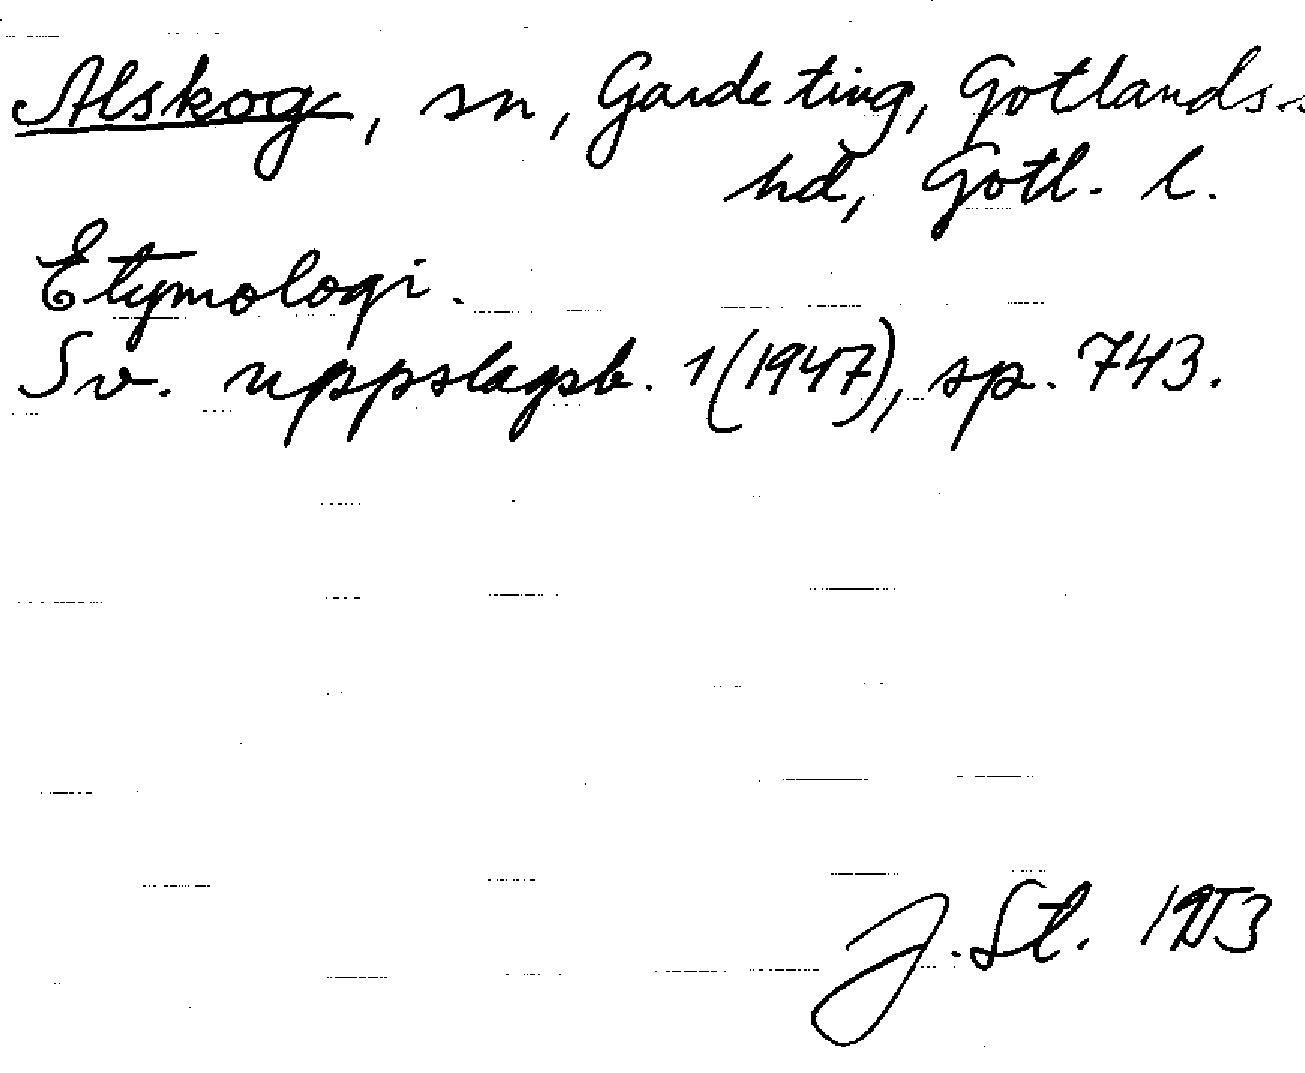 Alskog, sn, Garde ting, Gotlands
hd, Gotl. l.
Etymologi.
Sv. uppslagsb. 1 (1947), sp. 743.
J. St. 1953